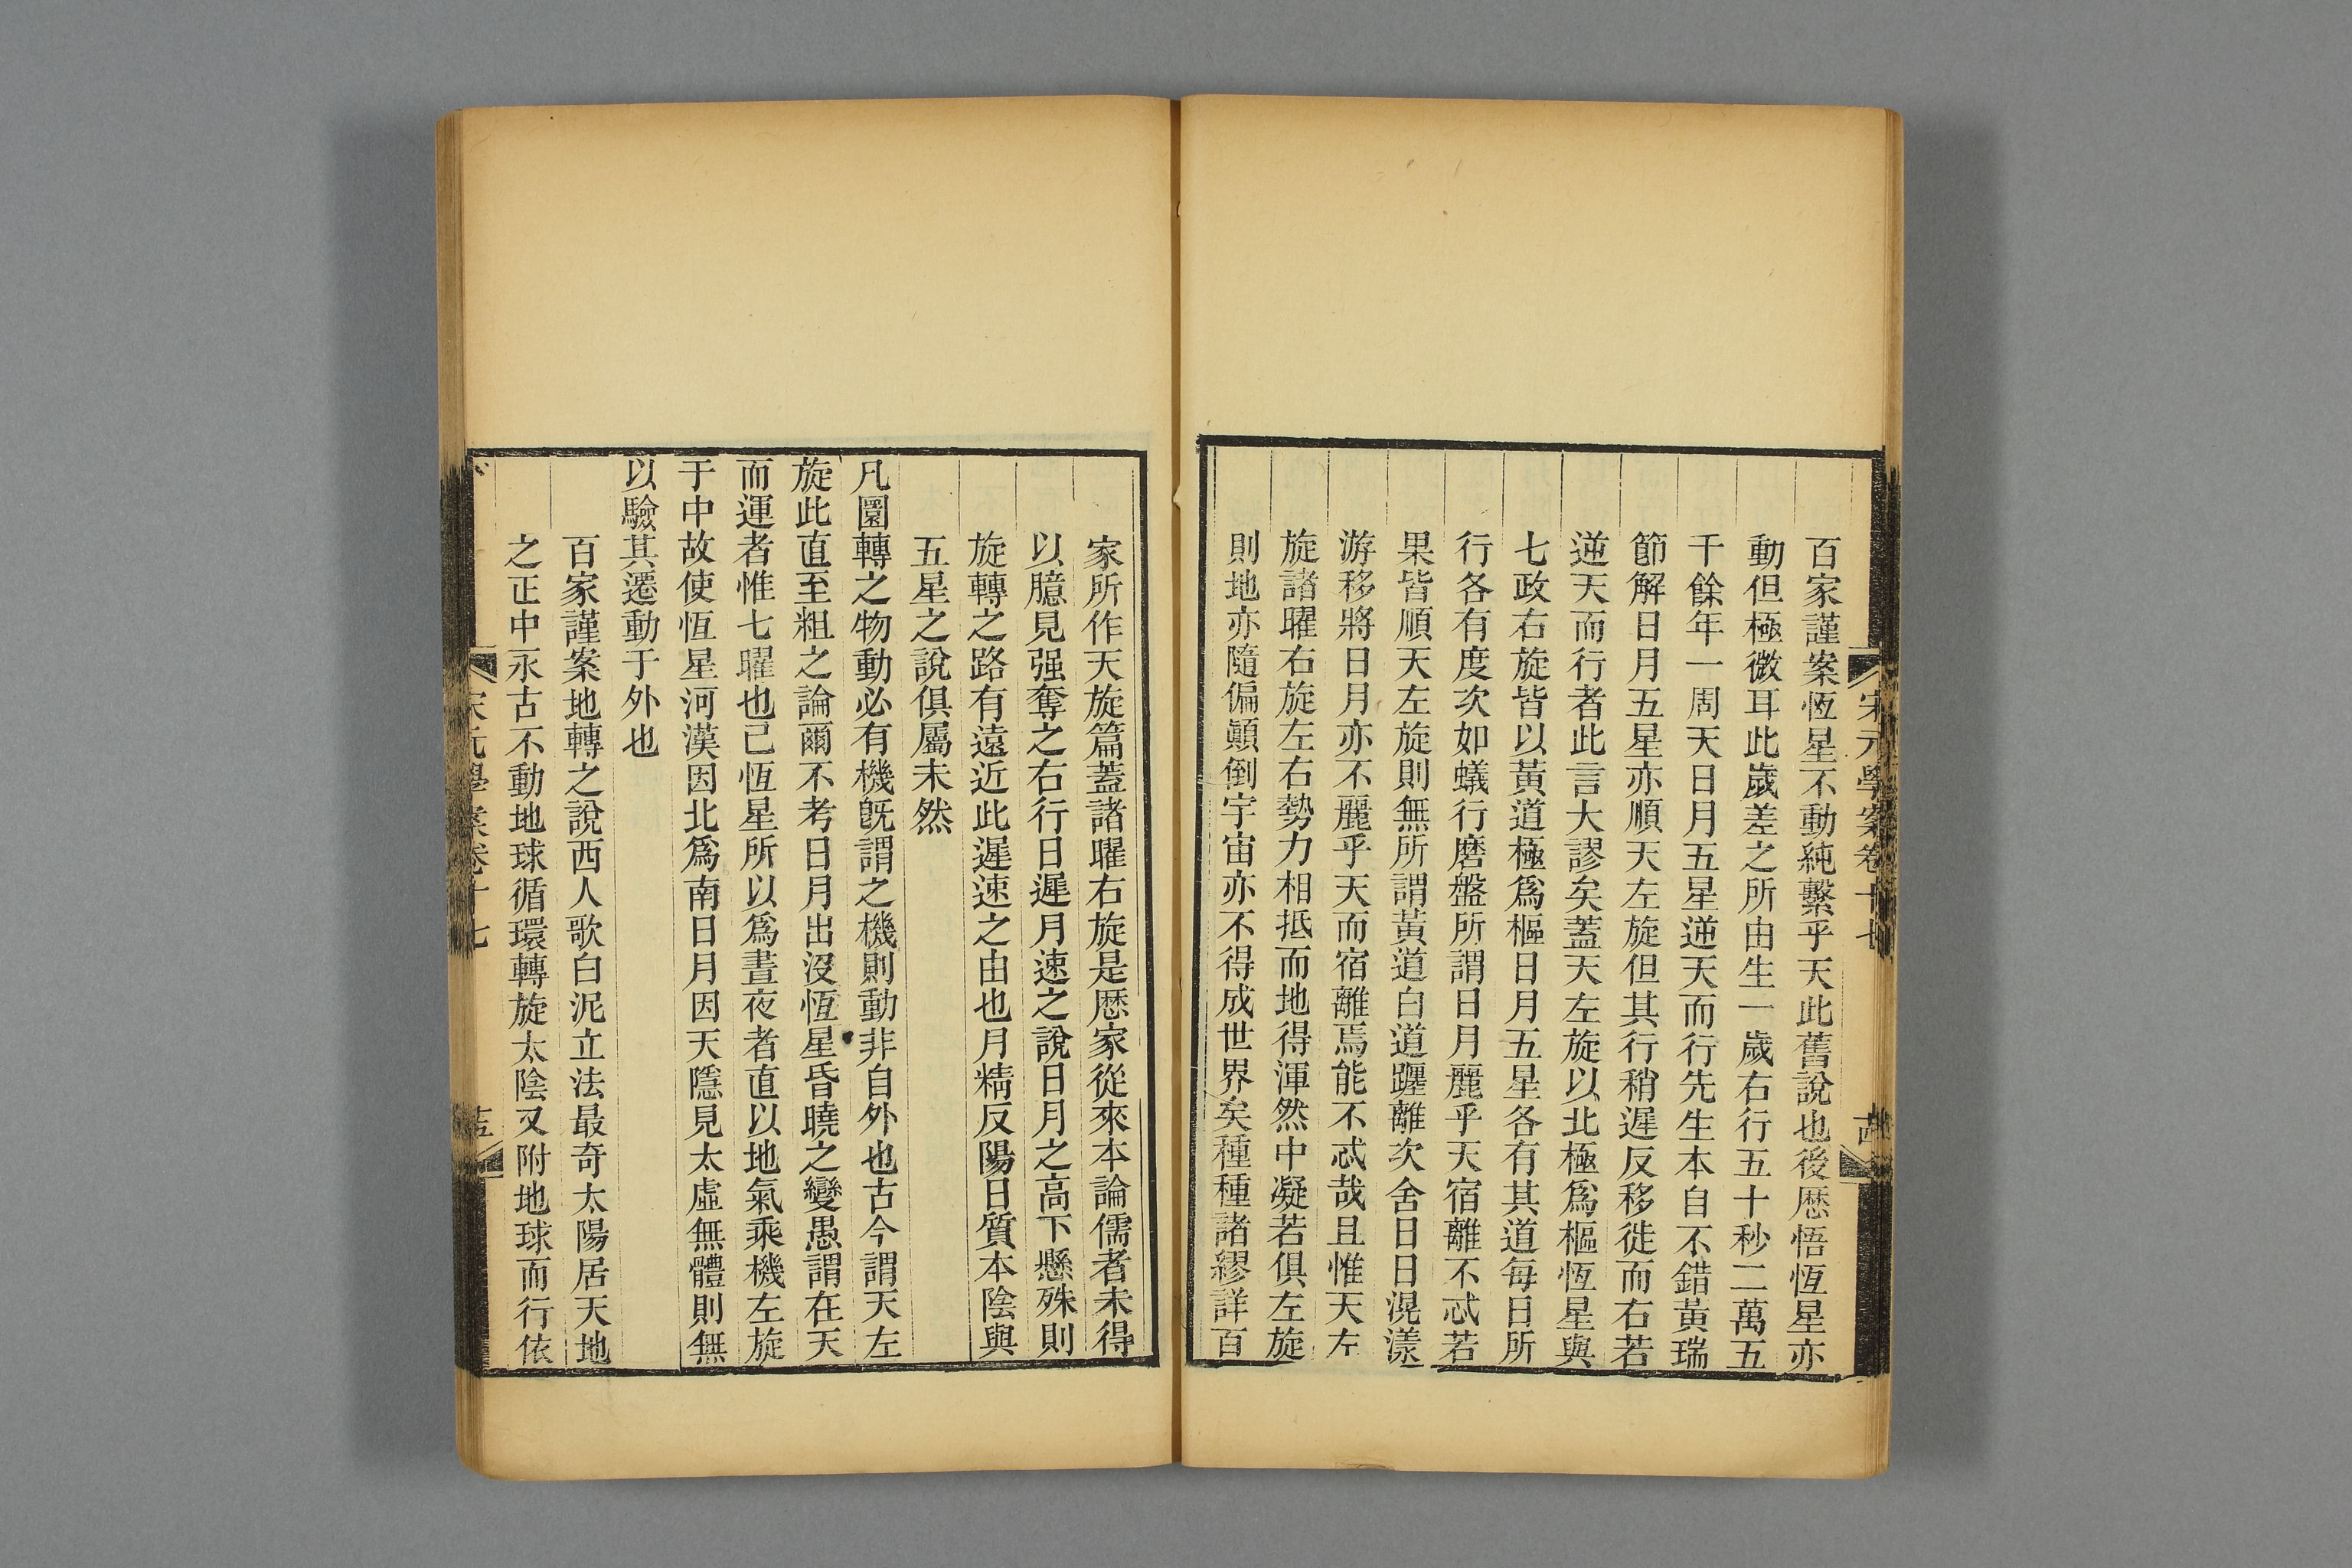 宋元學案卷十七
百家謹案恆星不動純繫乎天此舊說也後厯悟恆星亦
動但極微耳此歲差之所由生一歲右行五十秒二萬五
千餘年一周天日月五星逆天而行先生本自不錯黃瑞
節解日月五星亦順天左旋但其行稍遲反移徙而右若
逆天而行者此言大謬矣蓋天左旋以北極爲樞恆星與
七政右旋皆以黃道極爲樞日月五星各有其道每日所
行各有度次如蟻行磨盤所謂日月麗乎天宿離不忒若
果皆順天左旋則無所謂黃道白道躔離次舍日日滉漾
游移將日月亦不麗乎天而宿離焉能不忒哉且惟天左
旋諸曜右旋左右勢力相抵而地得渾然中凝若俱左旋
則地亦隨偏顚倒宇宙亦不得成世界矣種種諸繆詳百
家所作天旋篇蓋諸曜右旋是厯家從來本論儒者未得
以臆見强奪之右行日遲月速之說日月之高下懸殊則
旋轉之路有遠近此遲速之由也月精反陽日質本陰與
五星之說俱屬未然
凡圜轉之物動必有機旣謂之機則動非自外也古今謂天左
旋此直至粗之論爾不考日月出沒恆星昏曉之變愚謂在天
而運者惟七曜也已恆星所以爲晝夜者直以地氣乘機左旋
于中故使恆星河漢因北爲南日月因天隱見太虛無體則無
以驗其遷動于外也
百家謹案地轉之說西人歌白泥立法最奇太陽居天地
之正中永古不動地球循環轉旋太陰又附地球而行依
宋元學案卷十七